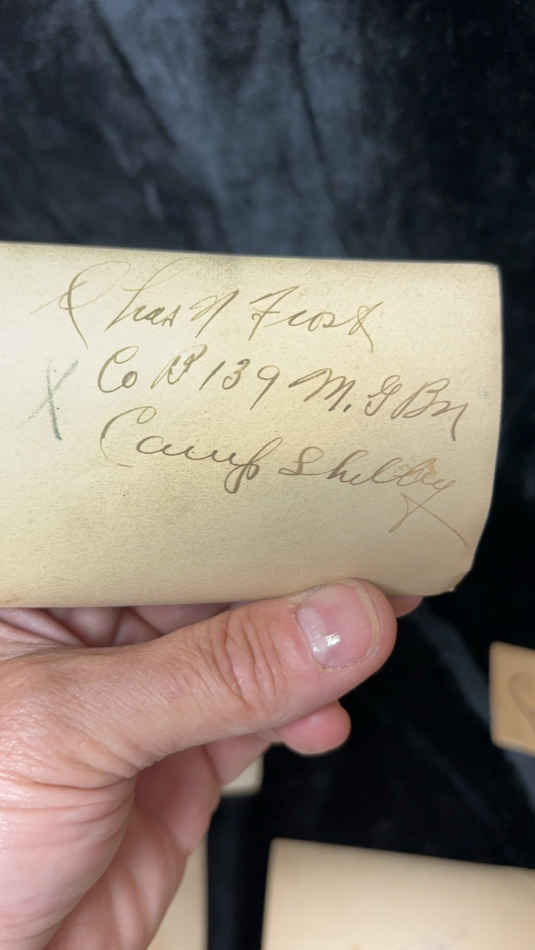 Chas N Frost
Co B 139 M. G Bn
Camp Shelby
X